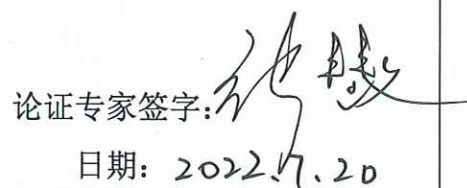 论证专家签字:
日期: 2022.7.20